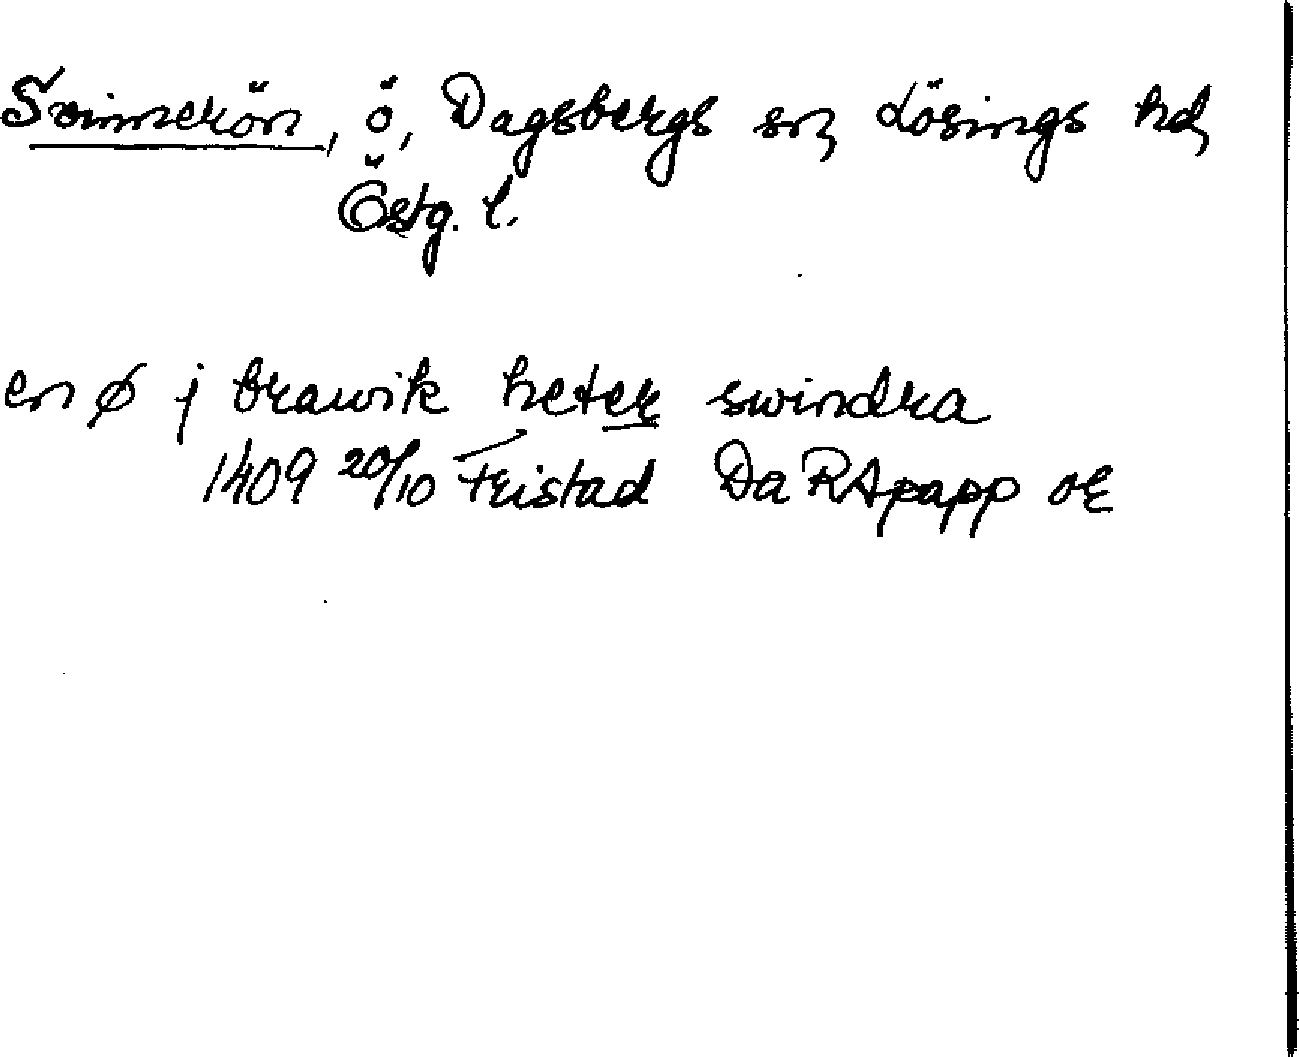 Svinnerön, ö, Dagsbergs sn, Lösings hd,
Östg. l.
en ø j brawik heter swindra
1409 20/10 Fristad Da RApapp or